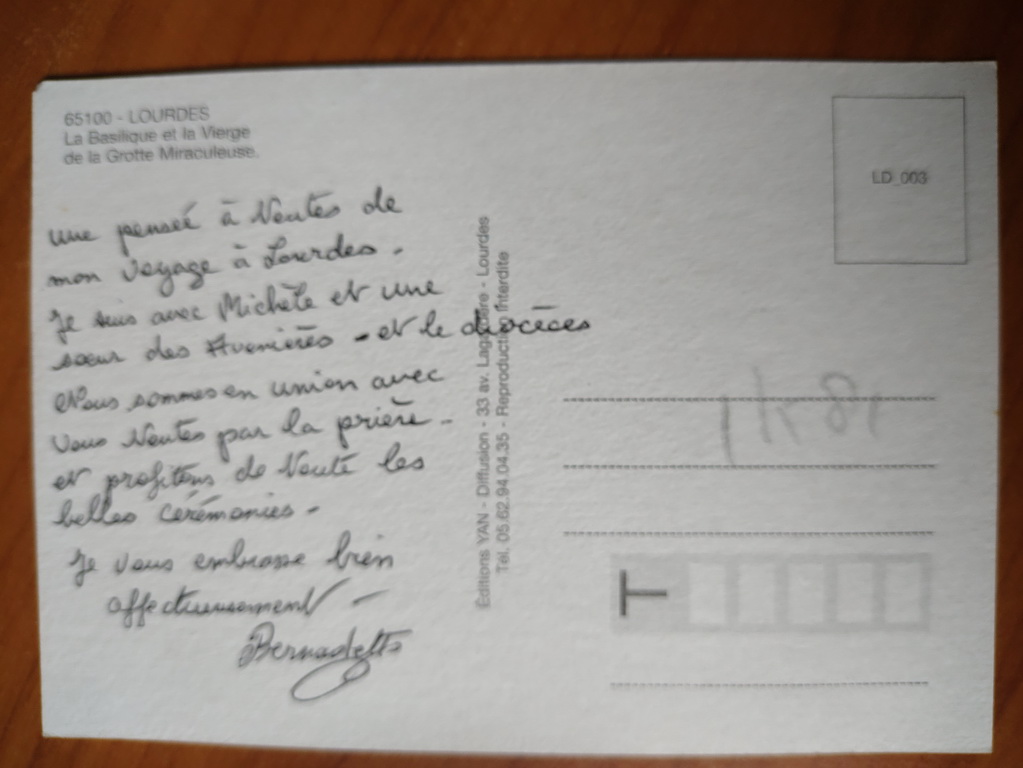 65100 - LOURDES
La Basilique et la Vierge
de la Grotte Miraculeuse.
une penseé à Toutes de
mon voyage à Lourdes.
Je suis avec Michèle et une
sœur des Avenières - et le diocèces
Nous sommes en union avec
vous Toutes par la prière -
et profitons de Toute les
belles cérémonies -
Je vous embrasse bien
affectueusement -
Bernadette
Éditions YAN - Diffusion - 33 av. Lagardère - Lourdes
Tél. 05.62.94.04.35 - Reproduction Interdite
LD_003
T